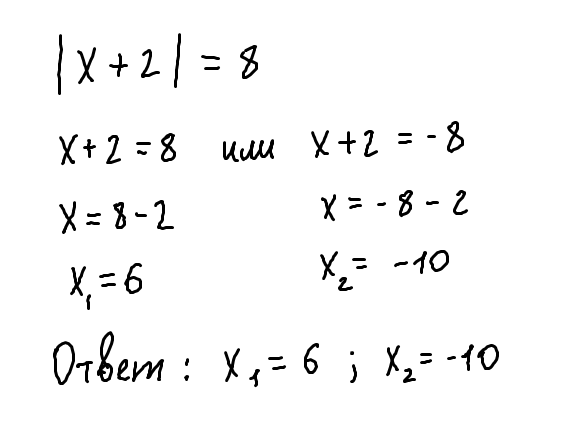 |x + 2| = 8
x + 2 = 8 или x + 2 = - 8
x = 8 - 2 x = - 8 - 2
x₁ = 6 x₂ = -10
Ответ : x₁ = 6 ; x₂ = -10